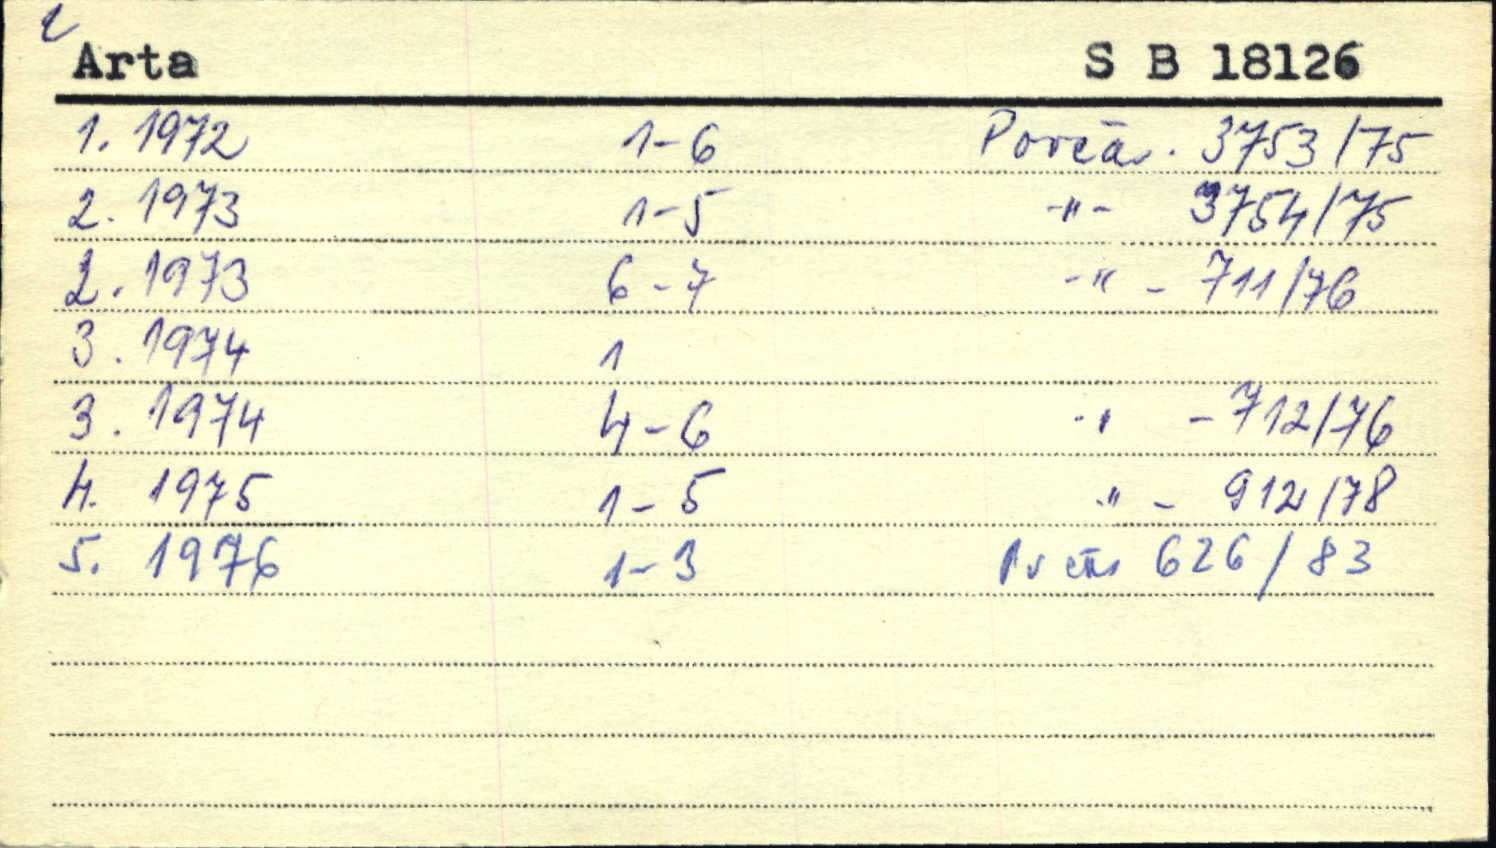 Arta S B 18126
1. 1972 1-6 Porčás. 3753/75
2. 1973 1-5 -"- 3754/75
2. 1973 6-7 -"- 711/76
3. 1974 1
3. 1974 4-6 -"- 712/76
4. 1975 1-5 -"- 912/78
5. 1976 1-3 626/83